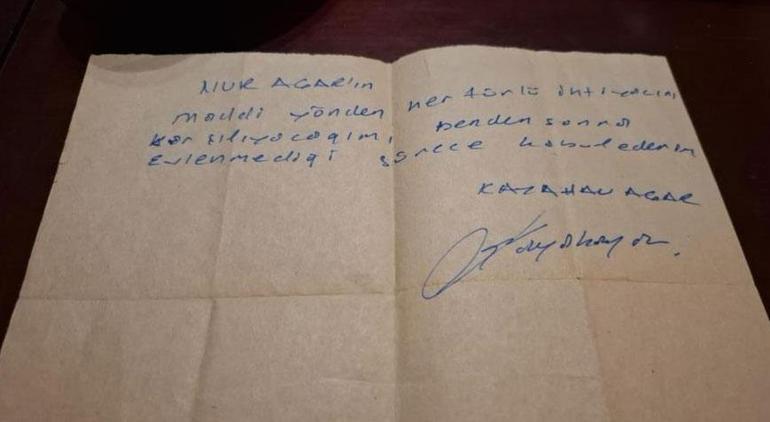 NUR AGAR'ın
maddi yönden her türlü intiyacını
karşılıyacağımı, benden sonra
evlenmediği sürece kabulederim
KAYAHAN AÇAR
Kayahan